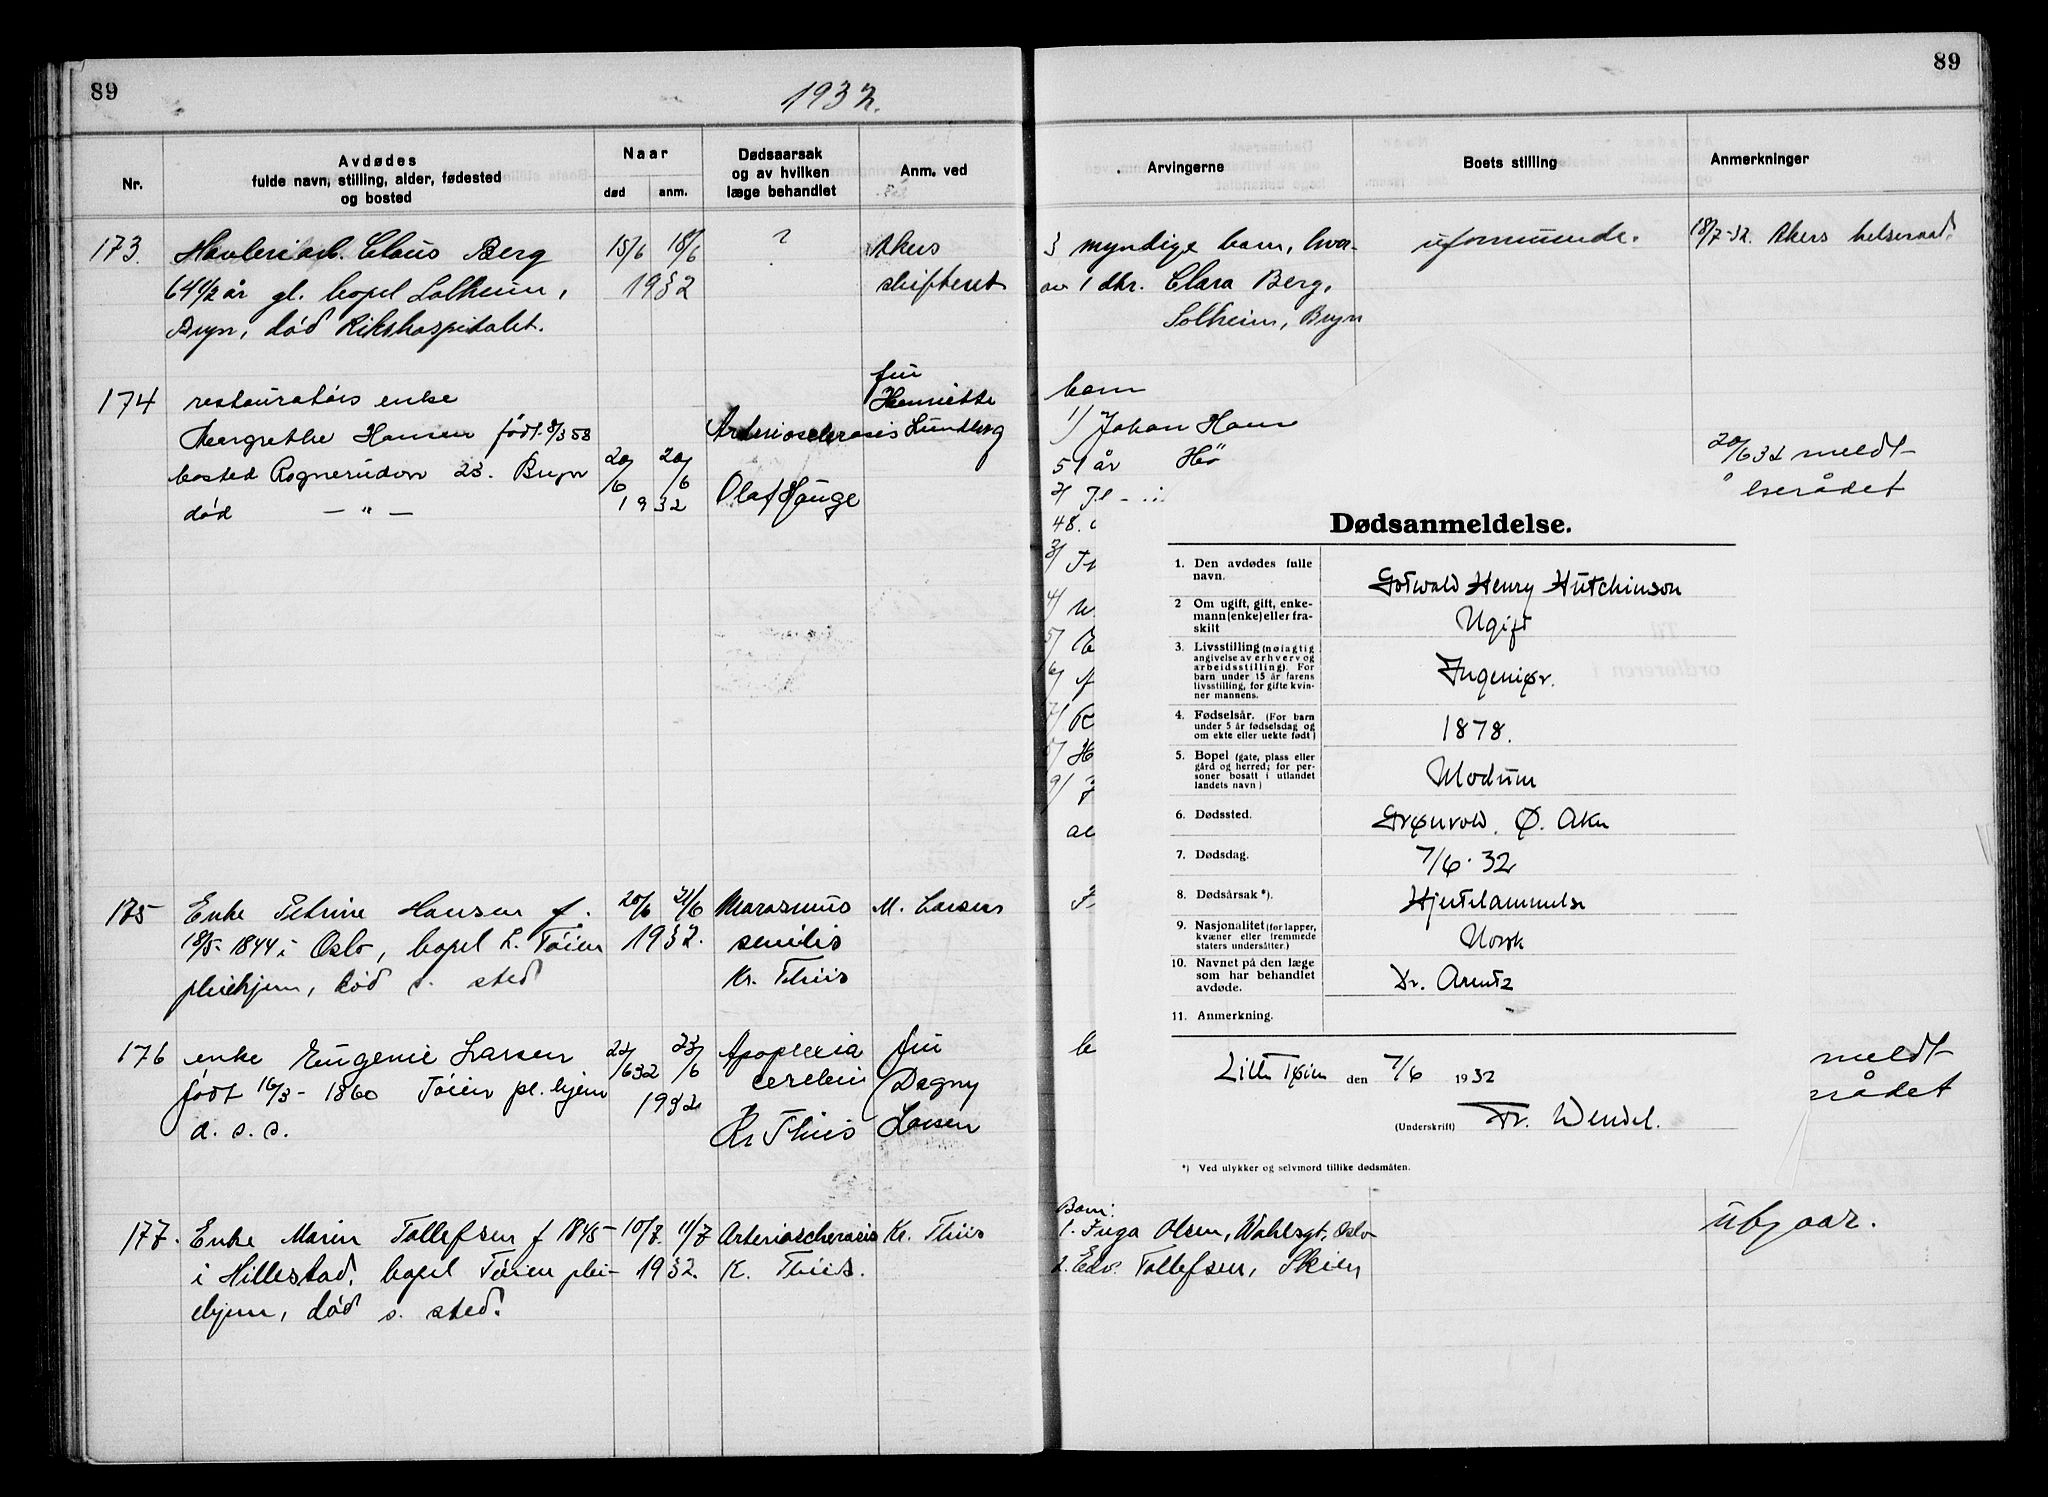 89
1932.
Nr.
Avdødes
fulde navn, stilling, alder, fødested
og bosted
Naar
død
anm.
Dødsaarsak
og av hvilken
læge behandlet
Anm. ved
173.
Claus Berg
64 1/2 år gl. bopel Solheim,
Bryn, død Rikshospitalet.
15/6 18/6
1932
?
Akers
skifteret
174
restauratørs enke
Margrethe Hansen født 8/3 58
bosted Rognerudvn 23. Bryn
død — " —
20/6 20/6
1932
Arteriosclerosis
Olaf Hauge
fru
Henriette
Lundberg
175
Enke Petrine Hansen f.
18/5-1844 i Oslo, bopel L. Tøien
pleiehjem, død s. sted
20/6 21/6
1932.
Marasmus
senilis
Kr. Thiis
M. Larsen
176
enke Eugenie Larsen
født 16/3 - 1860 Tøien pl. hjem
d. s. s.
22/6 32 23/6
1932
Apoplexia
cerebri
Kr Thiis
fru
Dagny
Larsen
177.
Enke Maren Tollefsen f 1845
i Hillestad, bopel Tøien plei-
ehjem, død s. sted.
10/7. 11/7
1932.
Arterioscherosis
K. Thiis.
Kr. Thiis
89
Arvingerne
Boets stilling
Anmerkninger
3 myndige barn, hvor-
av 1 dtr. Clara Berg,
Solheim, Bryn
uformuende.
18/7-32. Akers helseraad.
barn
1/ Johan Hans
51 år Hø
2/
48.
3/
4/
5/
6/
7/
9/
20/6 32 meldt
lserådet
Dødsanmeldelse.
1. Den avdødes fulle
navn.
Gotwald Henry Hutchinson
2 Om ugift, gift, enke-
mann (enke) eller fra-
skilt
Ugift
3. Livsstilling (nøiagtig
angivelse av erhverv og
arbeidsstilling). For
barn under 15 år farens
livsstilling, for gifte kvin-
ner mannens.
Ingeniør.
4. Fødselsår. (For barn
under 5 år fødselsdag og
om ekte eller uekte født)
1878.
5. Bopel (gate, plass eller
gård og herred; for per-
soner bosatt i utlandet
landets navn)
Modum
6. Dødssted.
Grønvold. Ø. Aker
7. Dødsdag.
7/6. 32
8. Dødsårsak *).
Hjertelammelse
9. Nasjonalitet (for lapper,
kvæner eller fremmede
staters undersåtter.)
Norsk
10. Navnet på den læge
som har behandlet
avdøde.
Dr. Arentz
11. Anmerkning.
Lille Tøien den 7/6 1932
(Underskrift) Fr. Wendel.
*) Ved ulykker og selvmord tillike dødsmåten.
meldt
rådet
Barn:
1. Inga Olsen, Wahlsgt, Oslo
2. Edv. Tollefsen, Skien
ubg aar.